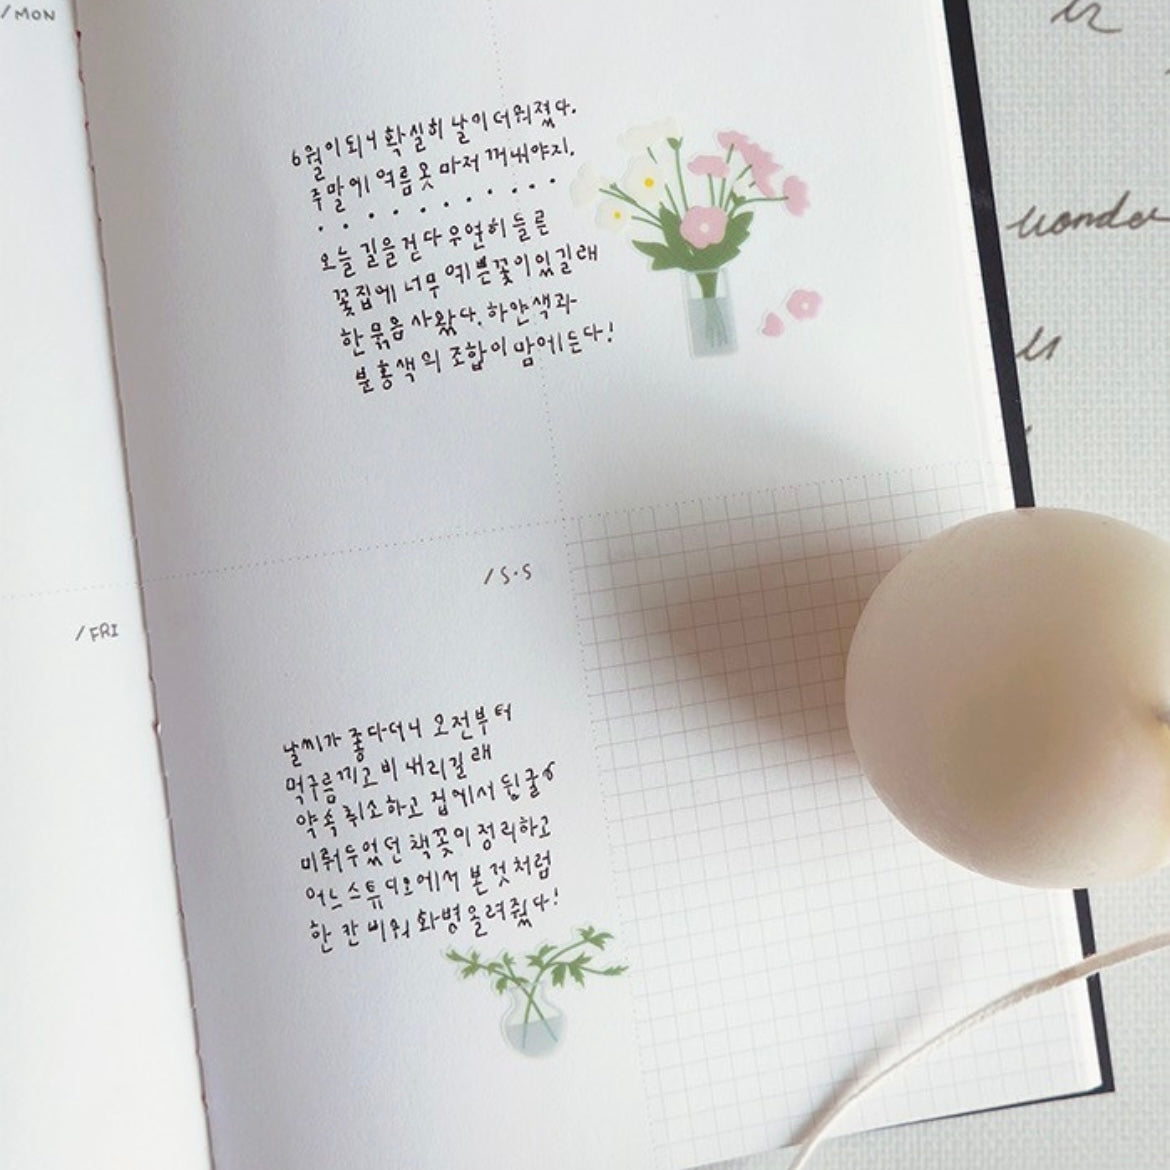 /MON
6월이 되니 확실히 날이 더워졌다.
주말에 여름옷 마저 꺼내야지.
오늘 길을 걷다 우연히 들른
꽃집에 너무 예쁜 꽃이 있길래
한 묶음 사왔다. 하얀색과
분홍색의 조합이 맘에 든다!
/S·S
/FRI
날씨가 좋다더니 오전부터
먹구름 끼고 비 내리길래
약속 취소하고 집에서 뒹굴
미뤄두었던 책꽂이 정리하고
어느 스튜디오에서 본 것처럼
한 칸 비워 화병 올려줬다!